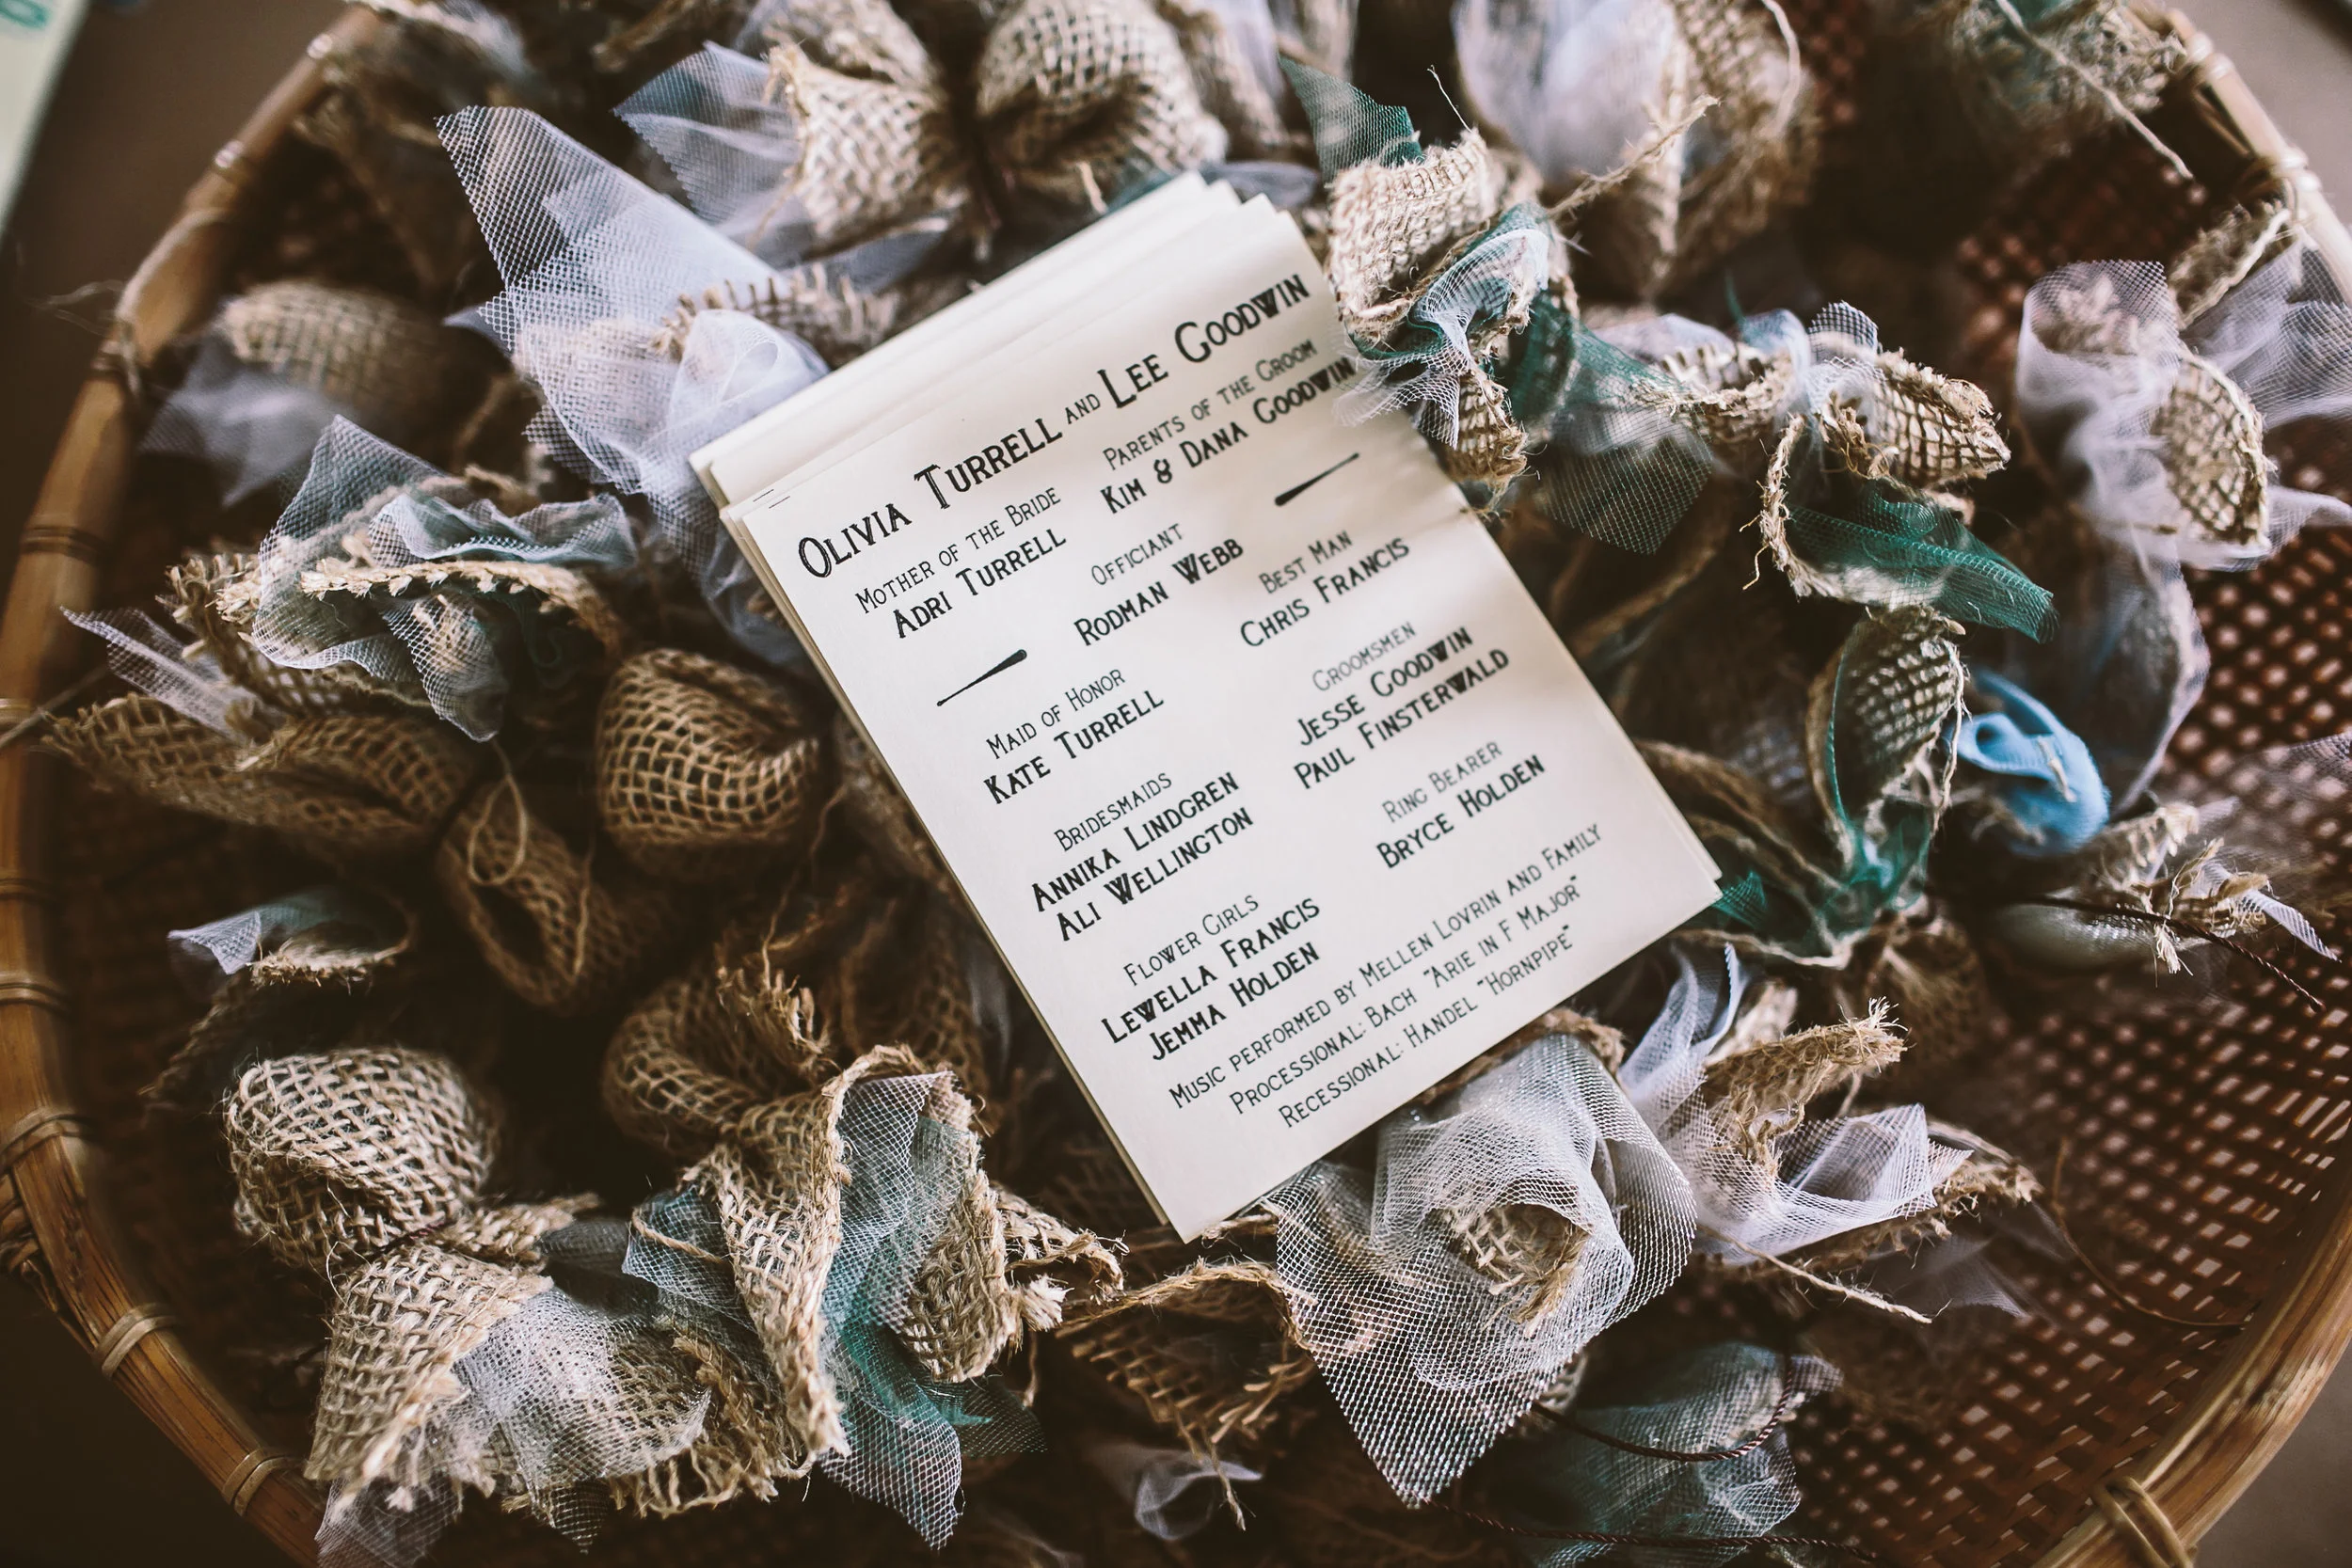 OLIVIA TURRELL AND LEE GOODWIN
MOTHER OF THE BRIDE
ADRI TURRELL
PARENTS OF THE GROOM
KIM & DANA GOODWIN
OFFICIANT
RODMAN WEBB
MAID OF HONOR
KATE TURRELL
BEST MAN
CHRIS FRANCIS
BRIDESMAIDS
ANNIKA LINDGREN
ALI WELLINGTON
GROOMSMEN
JESSE GOODWIN
PAUL FINSTERWALD
FLOWER GIRLS
LEWELLA FRANCIS
JEMMA HOLDEN
RING BEARER
BRYCE HOLDEN
MUSIC PERFORMED BY MELLEN LOVRIN AND FAMILY
PROCESSIONAL: BACH "ARIE IN F MAJOR"
RECESSIONAL: HANDEL "HORNPIPE"